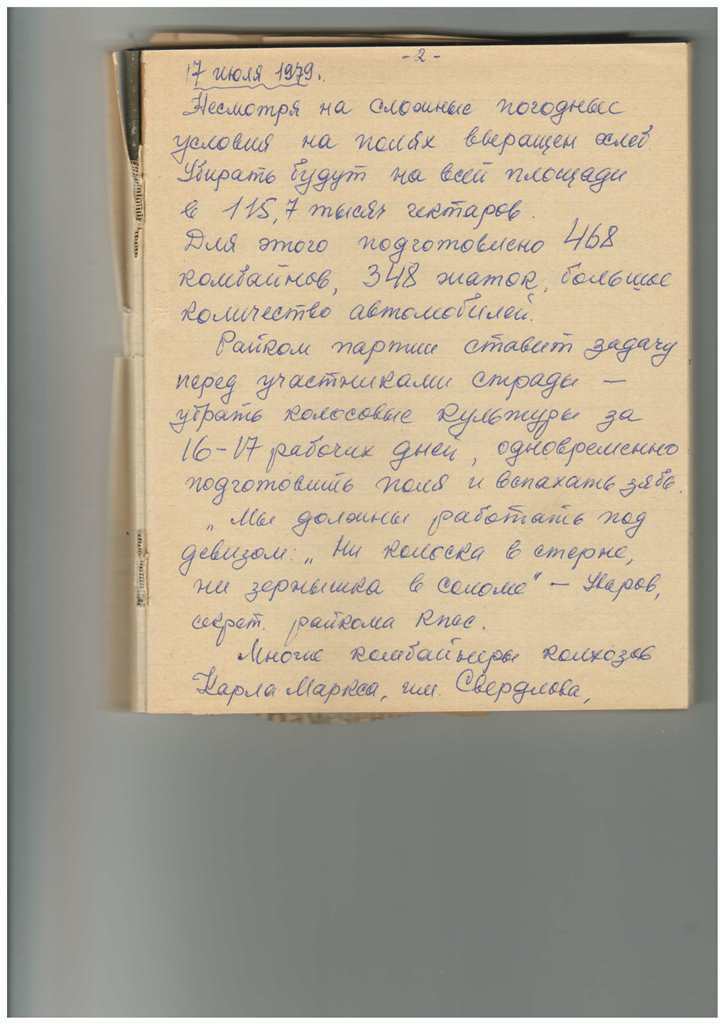 -2-
17 июля 1979.
Несмотря на сложные погодные
условия на полях выращен хлеб.
Убирать будут на всей площади
в 115,7 тысяч гектаров.
Для этого подготовлено 468
комбайнов, 348 жаток, большое
количество автомобилей.
Райком партии ставит задачу
перед участниками страды —
убрать колосовые культуры за
16-17 рабочих дней, одновременно
подготовить поля и вспахать зябь.
„Мы должны работать под
девизом: „Ни колоска в стерне,
ни зернышка в соломе" –
секрет. райкома КПСС.
Многие комбайнеры колхозов
Карла Маркса, им. Свердлова,